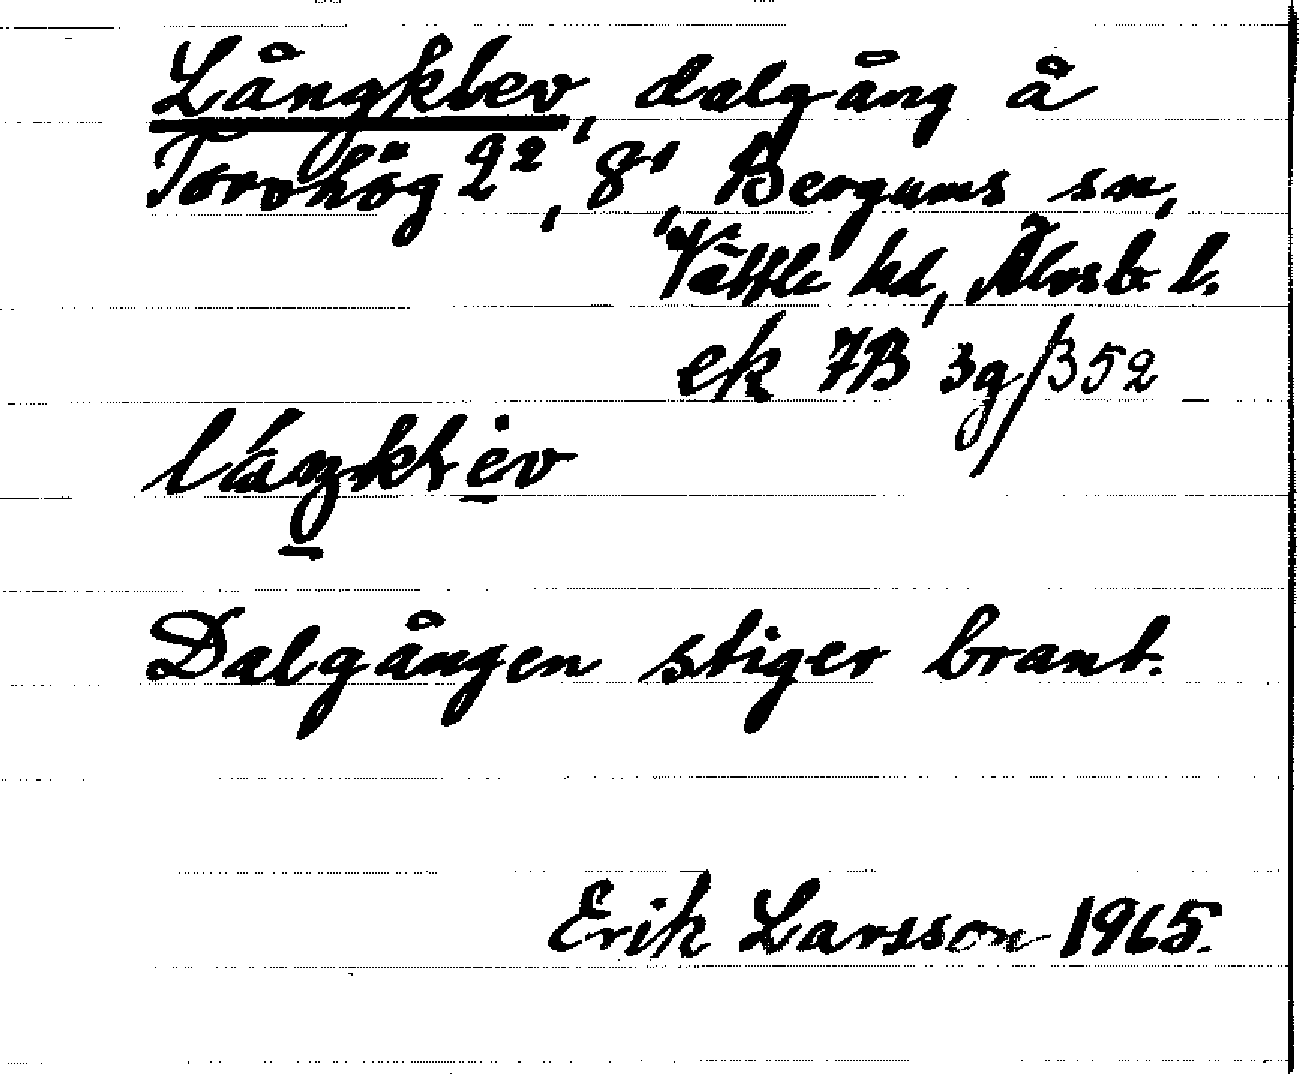 Långklev, dalgång å
Torvhög 2², 8¹, Bergums sn,
Vättle hd, Älvsb. l.
ek 7B 3g/β52
láŋklèv
Dalgången stiger brant.
Erik Larsson 1965.